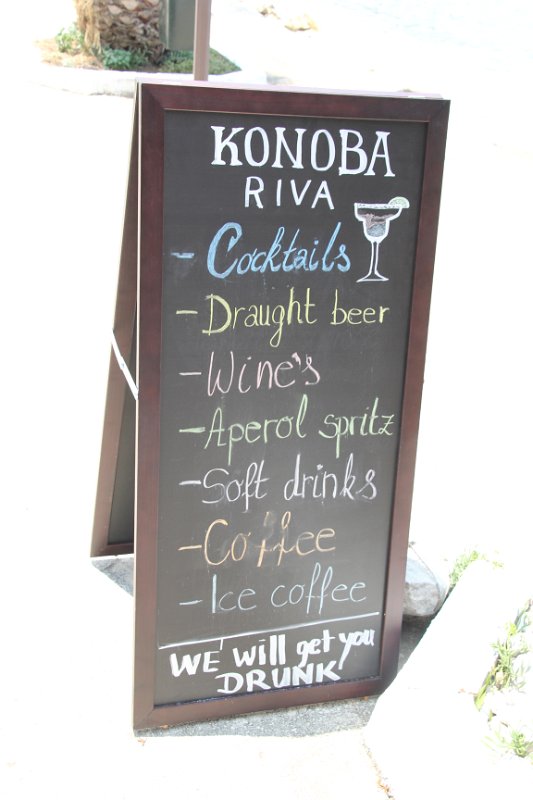 KONOBA
RIVA
- Cocktails
- Draught beer
- Wine's
- Aperol spritz
- Soft drinks
- Coffee
- Ice coffee
WE will get you
DRUNK